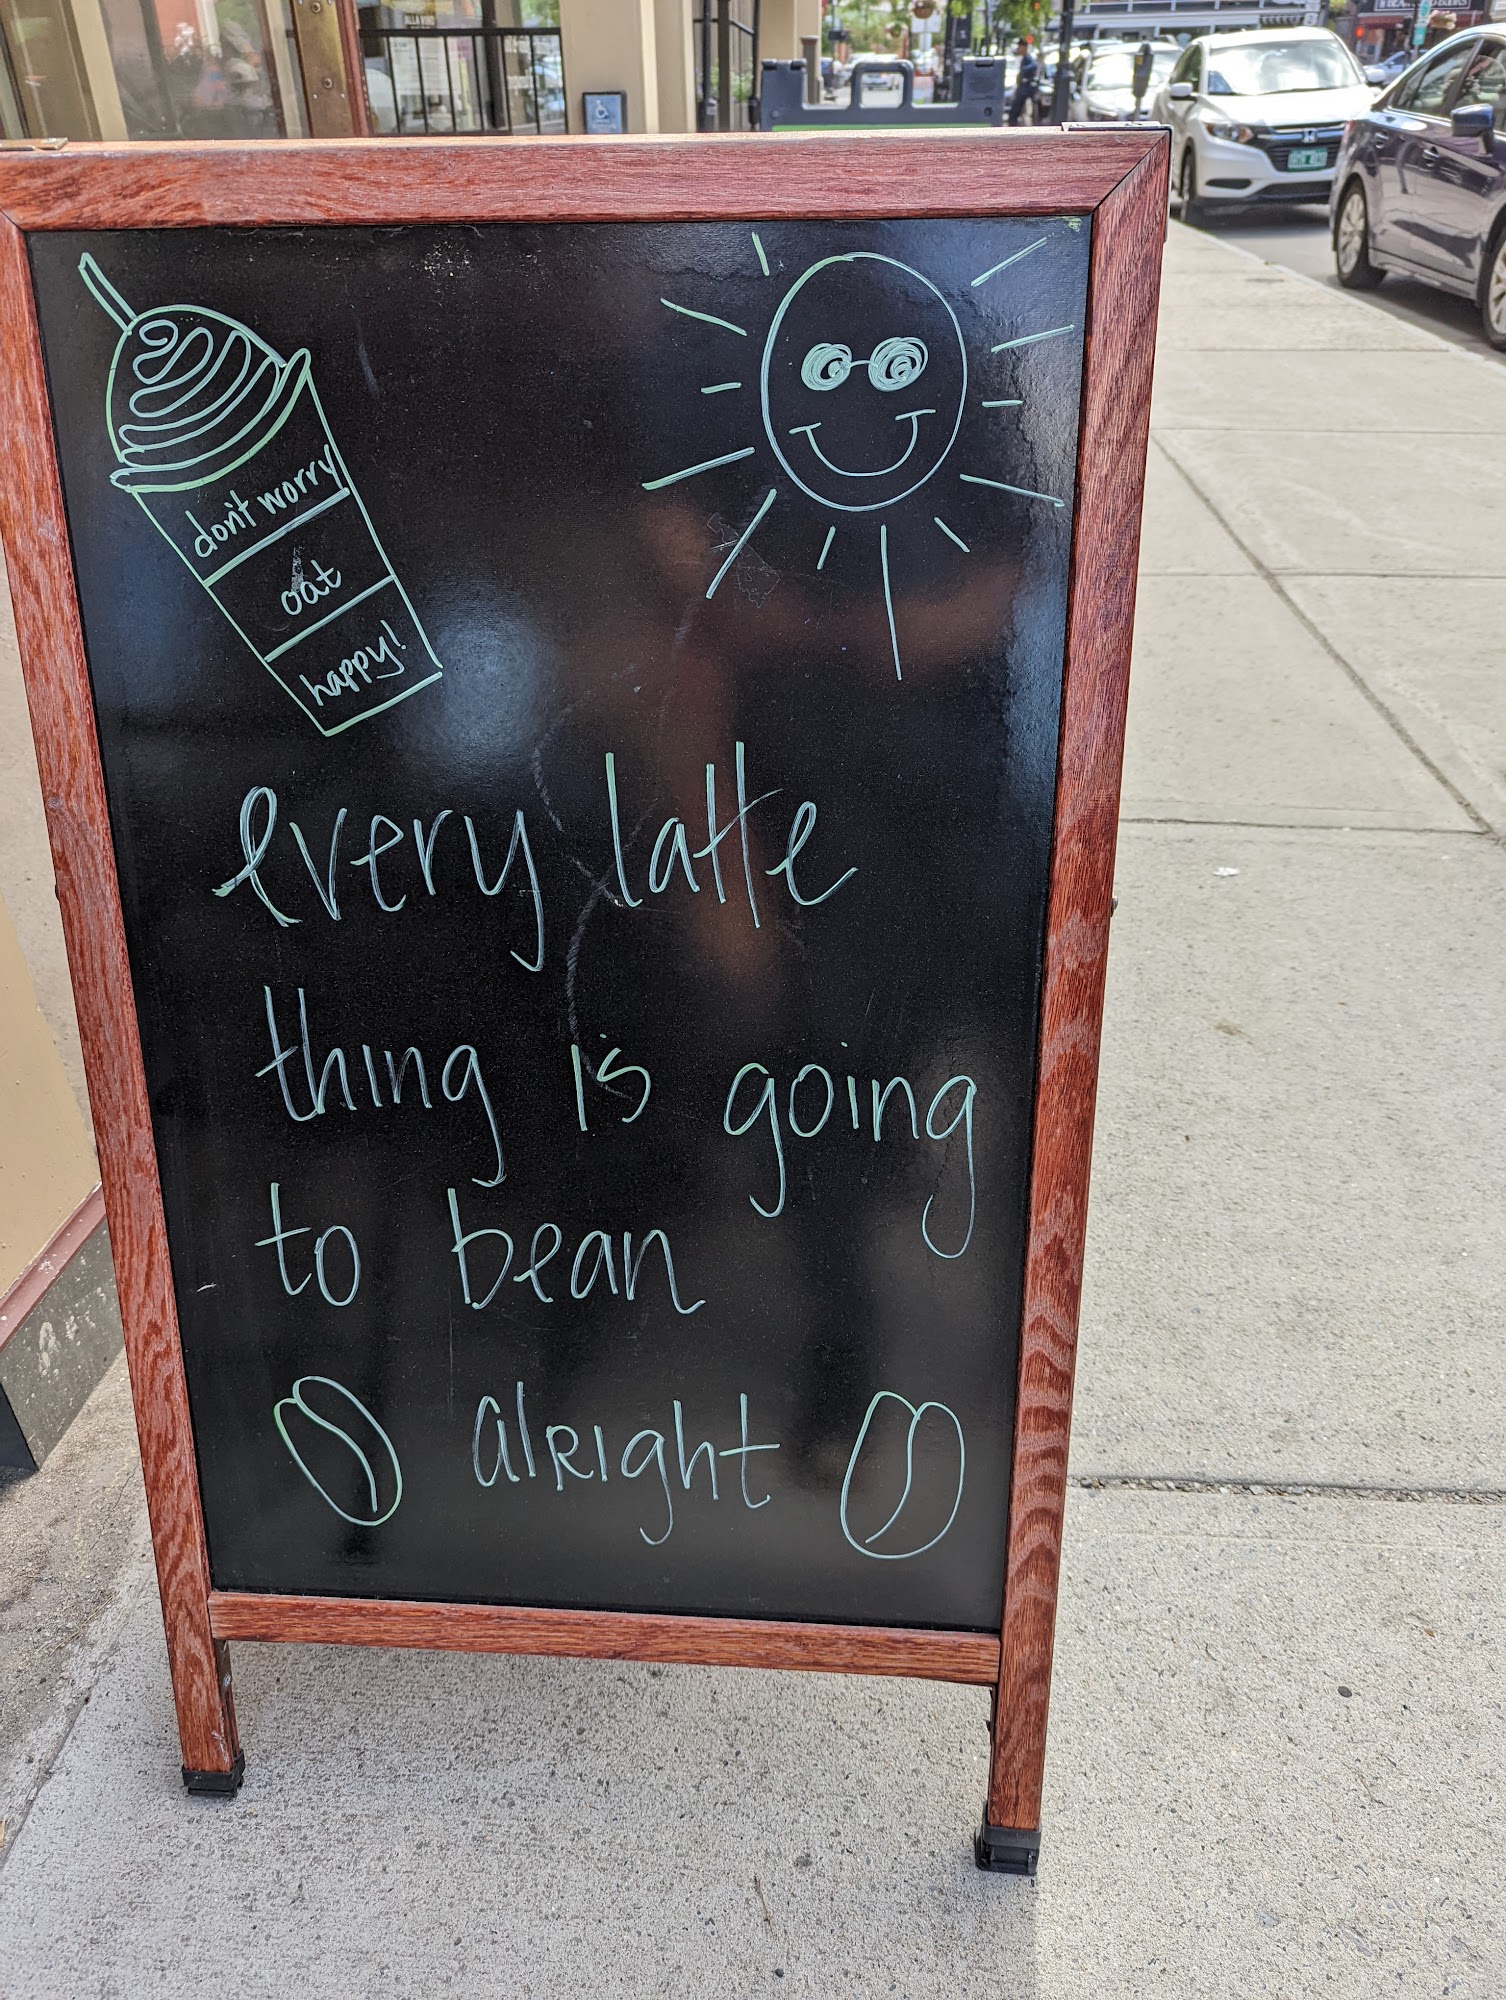 don't worry
oat
happy!
every latte
thing is going
to bean
alright